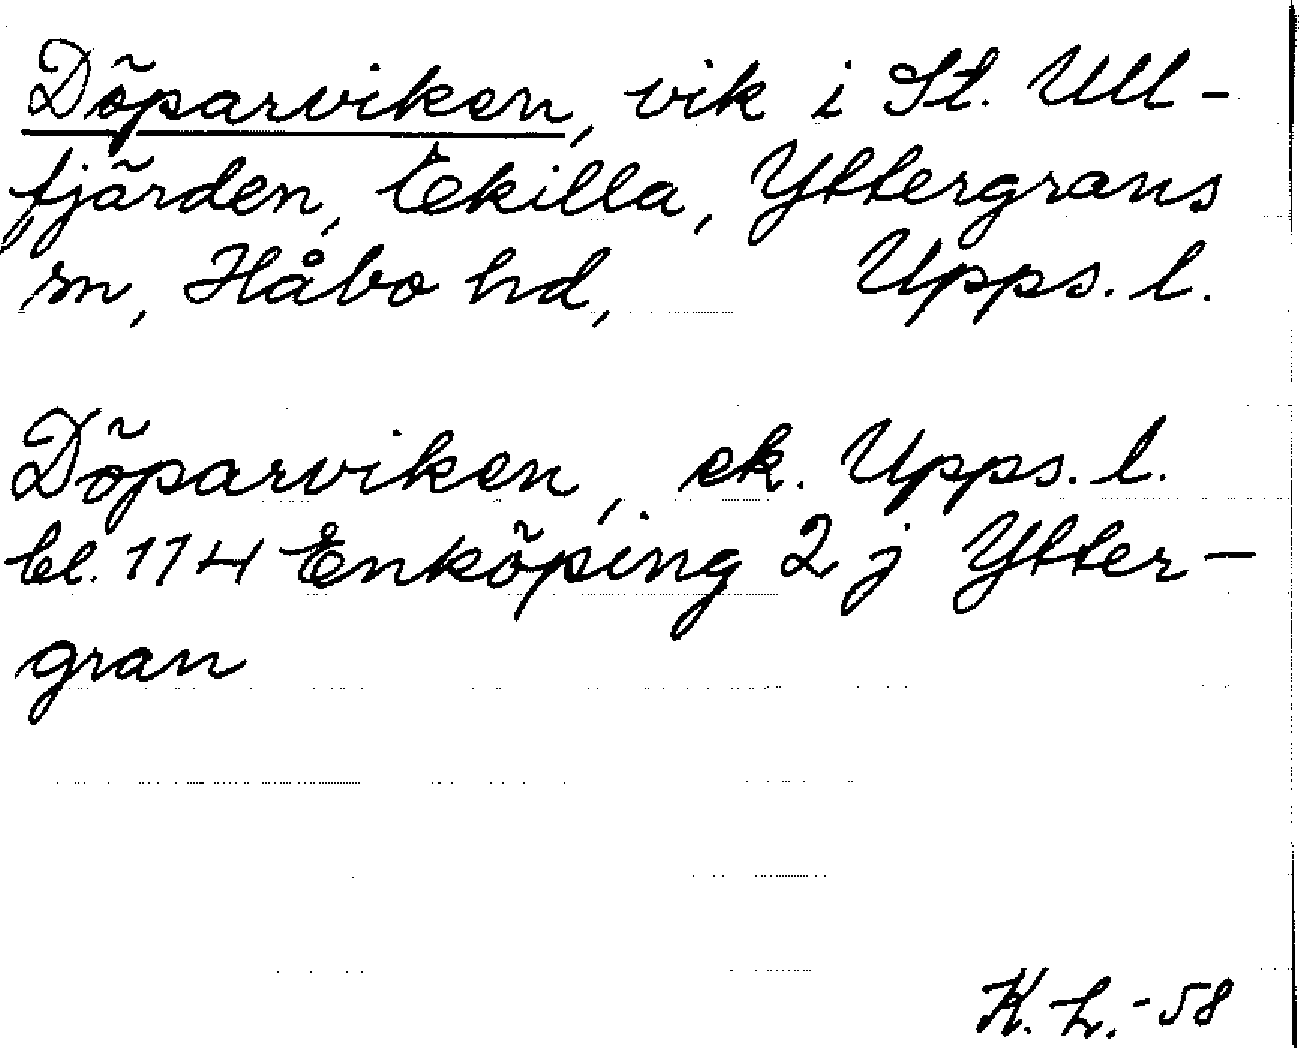 Döparviken, vik i St. Ull-
fjärden, Ekilla, Yttergrans
sn, Håbo hd, Upps. l.
Döparviken, ek. Upps. l.
bl. 114 Enköping 2 j Ytter-
gran
K. L. -58